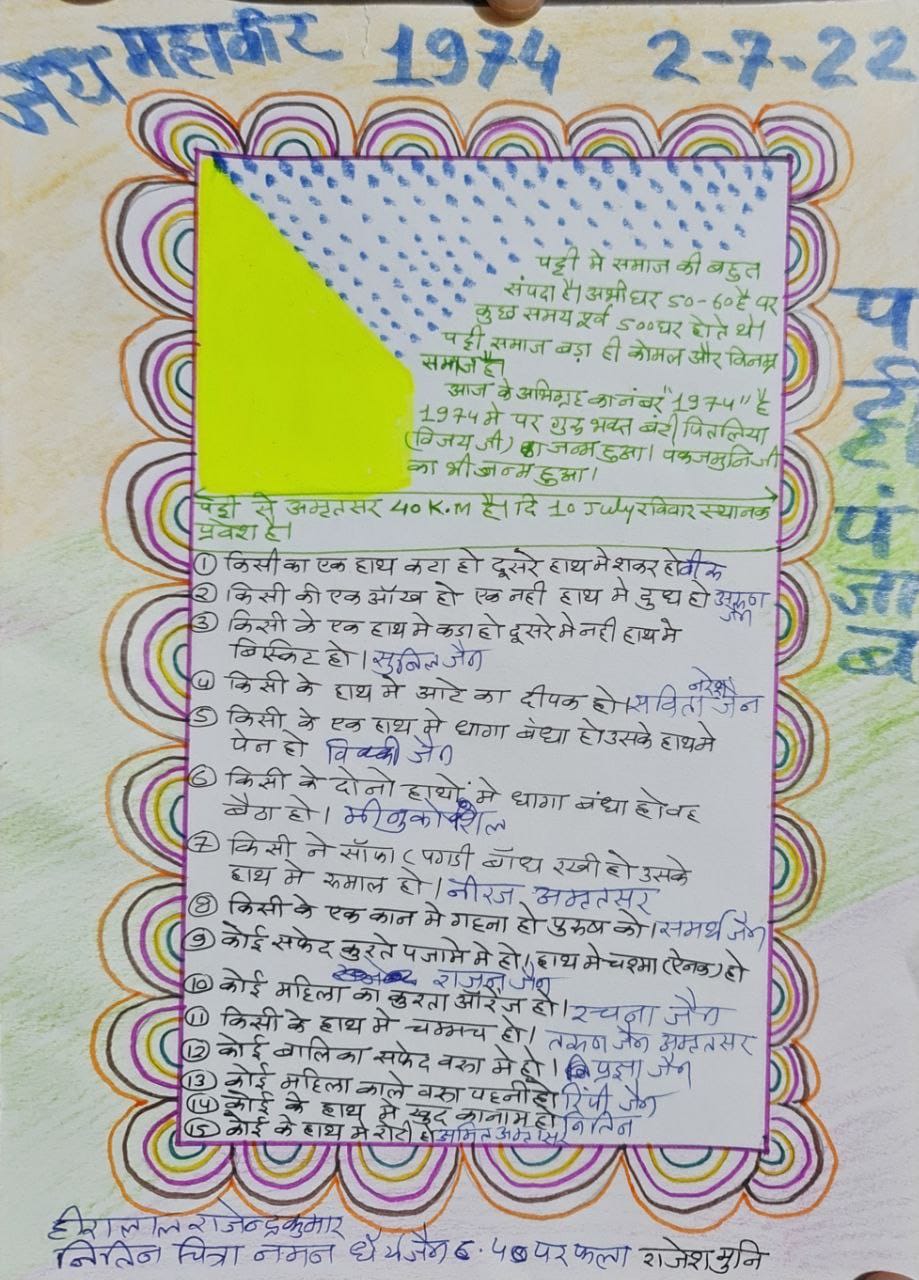 जय महावीर 1974 2-7-22
पट्टी पंजाब
पट्टी मे समाज की बहुत
संपदा है। अभी घर 50-60 है पर
कुछ समय पूर्व 500 घर होते थे।
पट्टी समाज बड़ा ही कोमल और विनम्र
समाज है।
आज के अभिग्रह का नंबर "1974" है
1974 मे पर गुरु भक्त बंटी पितलिया
(विजय जी) का जन्म हुआ। पंकजमुनि जी
का भी जन्म हुआ।
पट्टी से अमृतसर 40 K.M है। दि 10 July रविवार स्थानक
प्रवेश है।
① किसी का एक हाथ कटा हो दूसरे हाथ मे शकर हो
② किसी की एक ऑख हो एक नही हाथ मे दुध हो अरुण जैन
③ किसी के एक हाथ मे कडा हो दूसरे मे नही हाथ मे
बिस्किट हो। सुनिल जैन
④ किसी के हाथ मे आटे का दीपक हो। सविता नरेश जैन
⑤ किसी के एक हाथ मे धागा बंधा हो उसके हाथ मे
पेन हो विक्की जैन
⑥ किसी के दोनो हाथों मे धागा बंधा हो वह
बैठा हो।
⑦ किसी ने सॉफा (पगडी बॉध रखी हो उसके
हाथ मे रुमाल हो। नीरज अमृतसर
⑧ किसी के एक कान मे गहना हो पुरुष को। समर्थ जैन
⑨ कोई सफेद कुरते पजामे मे हो। हाथ मे चश्मा (ऐनक) हो
राजन जैन
⑩ कोई महिला का कुरता ऑरेंज हो। रचना जैन
⑪ किसी के हाथ मे चम्मच हो। तरुण जैन अमृतसर
⑫ कोई बालिका सफेद वस्त्र मे हो। प्रज्ञा जैन
⑬ कोई महिला काले वस्त्र पहनी हो रिंपी जैन
⑭ कोई के हाथ मे खुद का नाम हो नितिन
⑮ कोई के हाथ मे रोटी हो अमित अमृतसर
हीरालाल राजेन्द्रकुमार
नितिन चित्रा नमन धैर्य जैन 6.40 पर फला राजेश मुनि